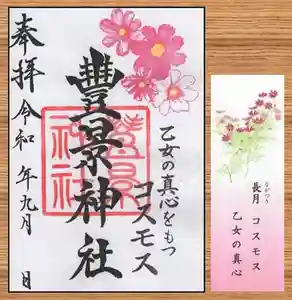 奉拝
令和　年九月　日
豐景神社
乙女の真心をもつ
コスモス
長月　コスモス
ながつき
乙女の真心